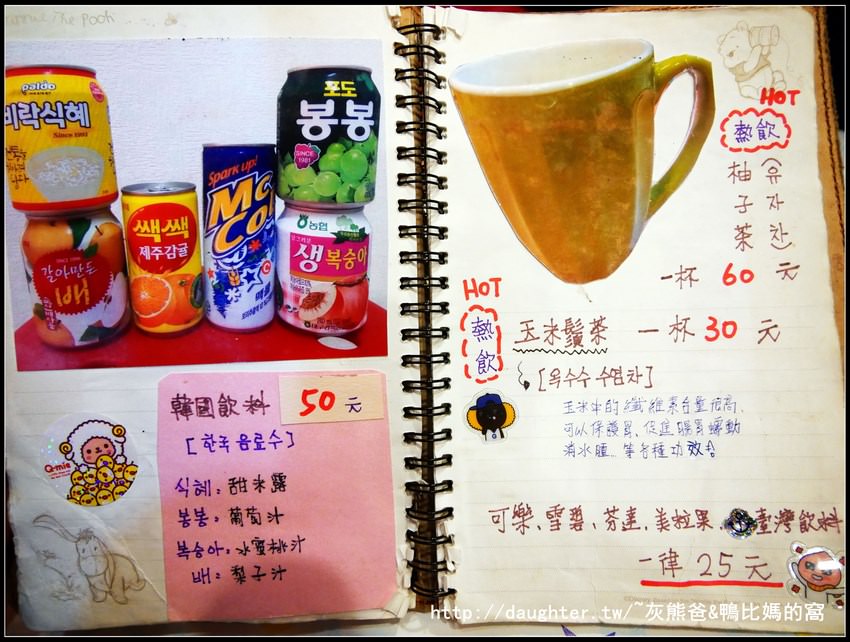 Winnie The pooh
paldo
비락식혜
Since 1981
포도
봉봉
SINCE 1981
쌕쌕
제주감귤
Spark up!
McCol
맥콜
농협
생복숭아
갈아만든
배
Q-mie
韓國飲料 50元
[한국 음료수]
식혜: 甜米露
봉봉: 葡萄汁
복숭아: 水蜜桃汁
배: 梨子汁
HOT
熱飲
柚子茶
(유자찬)
一杯 60 元
HOT
熱飲
玉米鬚茶 一杯 30 元
[옥수수 수염차]
玉米中的纖維素含量很高,
可以保護胃、促進腸胃蠕動
消水腫...等各種功效!
可樂、雪碧、芬達、美粒果 臺灣飲料
一律 25元
http://daughter.tw/~灰熊爸&鴨比媽的窩